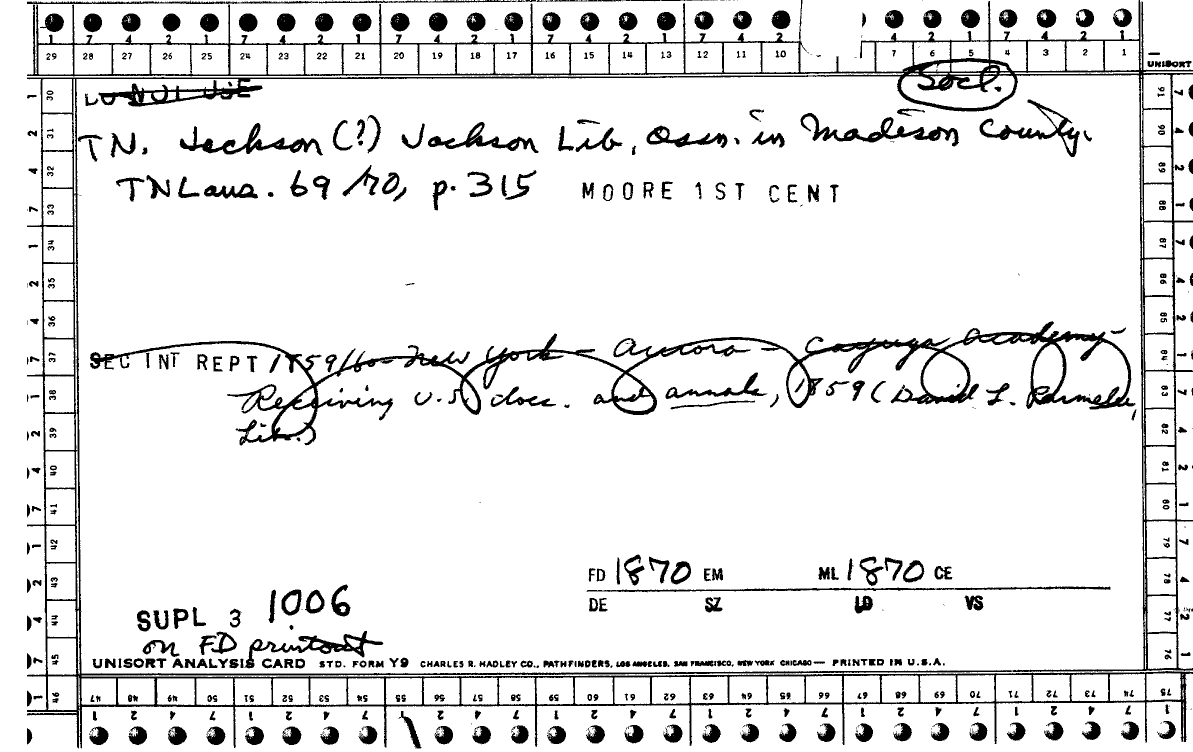 7 4 2 1 7 4 2 1 7 4 2 1 7 4 2 1 7 4 2 1 7 4 2 1
29 28 27 26 25 24 23 22 21 20 19 18 17 16 15 14 13 12 11 10 7 6 5 4 3 2 1
UNISORT
DO NOT USE
Socl.
TN. Jackson (?) Jackson Lib. Assn. in Madison County.
TN Laws. 69/70, p. 315 MOORE 1ST CENT
SEC INT REPT 1859/60 New York - Aurora - Cayuga Academy -
Receiving U.S. docs. and annals, 1859 (David L. Parmelee,
Lib.)
FD 1870 EM ML 1870 CE
DE SZ LD VS
SUPL 3 1006
on FD printout
UNISORT ANALYSIS CARD STD. FORM Y9 CHARLES R. HADLEY CO., PATHFINDERS, LOS ANGELES, SAN FRANCISCO, NEW YORK CHICAGO — PRINTED IN U.S.A.
46 47 48 49 50 51 52 53 54 55 56 57 58 59 60 61 62 63 64 65 66 67 68 69 70 71 72 73 74 75